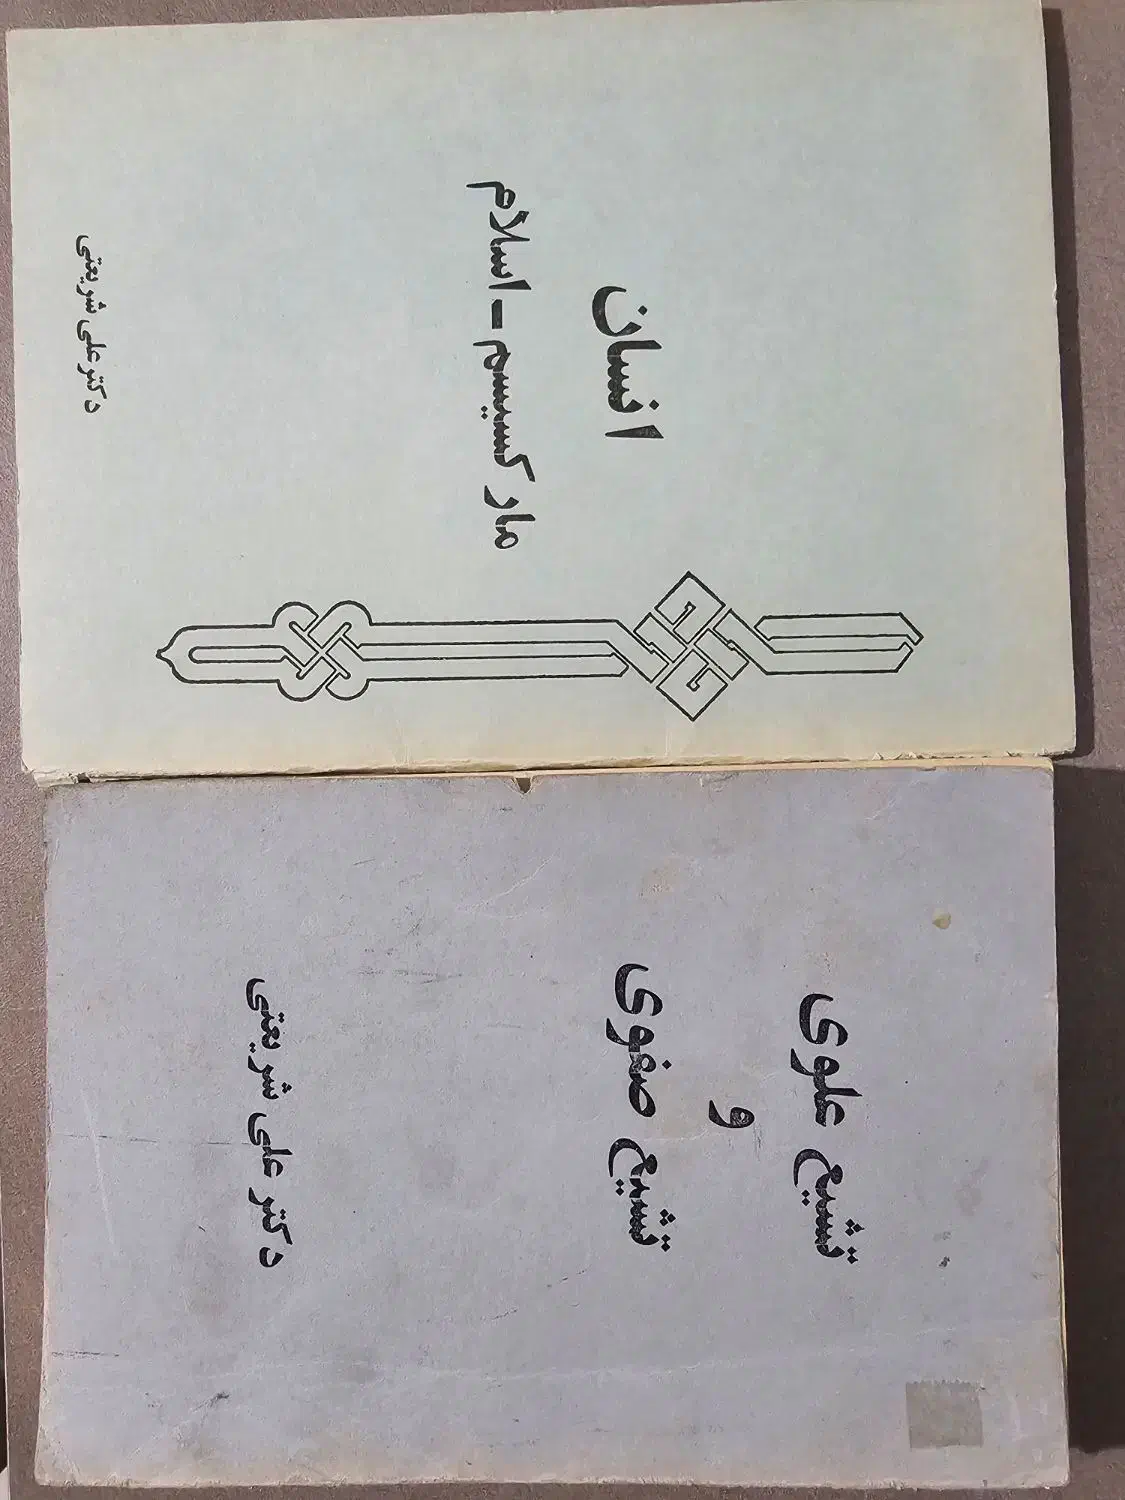 انسان
مارکسیسم - اسلام
دکتر علی شریعتی
تشیع علوی
و
تشیع صفوی
دکتر علی شریعتی